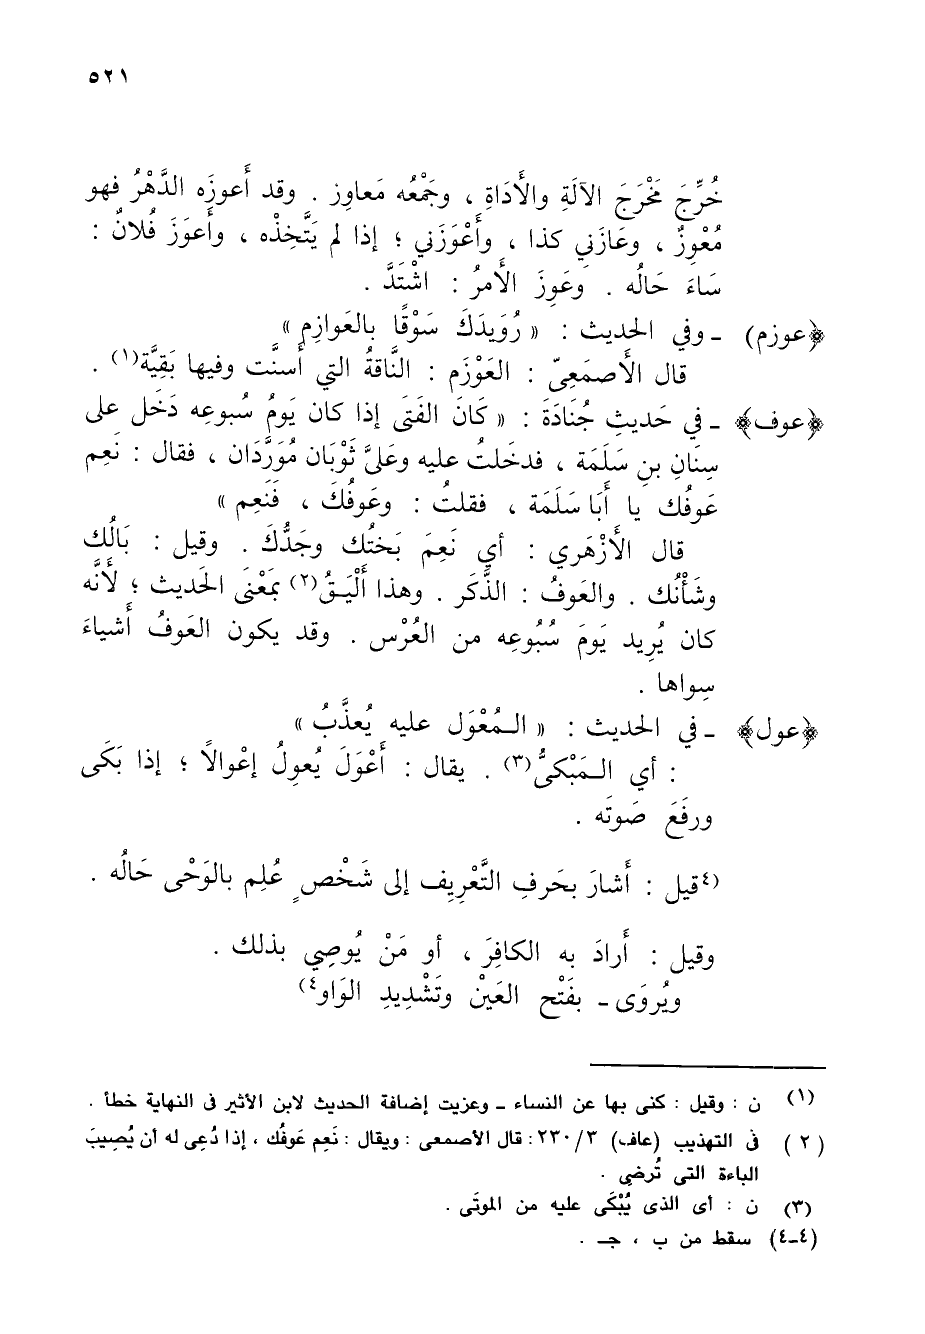 ٥٢١
خُرِّجَ مَخْرَجَ الآلَةِ والأَدَاةِ ، وجَمْعُه مَعاوِز . وقد أَعوزَه الدَّهْرُ فهو
مُعْوِزٌ ، وعَازَنِي كذا ، وأَعْوَزَنِي ؛ إذا لم يَتَّخِذْه ، وأَعوَزَ فُلانٌ :
سَاءَ حَالُه . وعَوِزَ الأَمرُ : اشْتَدَّ .
﴿عوزم﴾ ـ وفي الحديث : « رُوَيدَكَ سَوْقًا بالعَوازِم »
قال الأَصمَعِىّ : العَوْزَم : النَّاقةُ التي أَسنَّت وفيها بَقِيَّة(١) .
﴿عوف﴾ ـ في حَديثِ جُنَادَةَ : « كَانَ الفَتَى إذا كان يَومُ سُبوعِه دَخَل على
سِنَانِ بنِ سَلَمَة ، فدخلتُ عليه وعَلىَّ ثَوْبَان مُوَرَّدَان ، فقال : نَعِم
عَوفُك يا أَبَا سَلَمَة ، فقلتُ : وعَوفُكَ ، فَنَعِم »
قال الأَزْهَرِي : أي نَعِمَ بَختُك وجَدُّكَ . وقيل : بَالُك
وشَأْنُك . والعَوفُ : الذَّكَر . وهذا أَلْيَقُ(٢) بمَعْنَى الحَديث ؛ لأَنَّه
كان يُرِيد يَومَ سُبُوعِه من العُرْس . وقد يكون العَوفُ أَشياءَ
سِواها .
﴿عول﴾ ـ في الحديث : « المُعْوَل عليه يُعذَّبُ »
: أي المَبْكىُّ(٣) . يقال : أَعْوَلَ يُعوِلُ إعْوالاً ؛ إذا بَكَى
ورفَعَ صَوتَه .
(٤قيل : أَشارَ بحَرفِ التَّعْرِيف إلى شَخْصٍ عُلِم بالوَحْى حَالُه .
وقيل : أَرادَ به الكافِرَ ، أو مَنْ يُوصِي بذلك .
ويُروَى ـ بفَتْح العَيْن وتَشْدِيدِ الوَاو٤)
(١) ن : وقيل : كنى بها عن النساء ـ وعزيت إضافة الحديث لابن الأثير فى النهاية خطأ .
(٢) فى التهذيب (عاف) ٢٣٠/٣ : قال الأصمعى : ويقال : نَعِم عَوفُك ، إذا دُعِى له أن يُصِيبَ
الباءة التى تُرضِى .
(٣) ن : أى الذى يُبْكَى عليه من الموتَى .
(٤ـ٤) سقط من ب ، جـ .